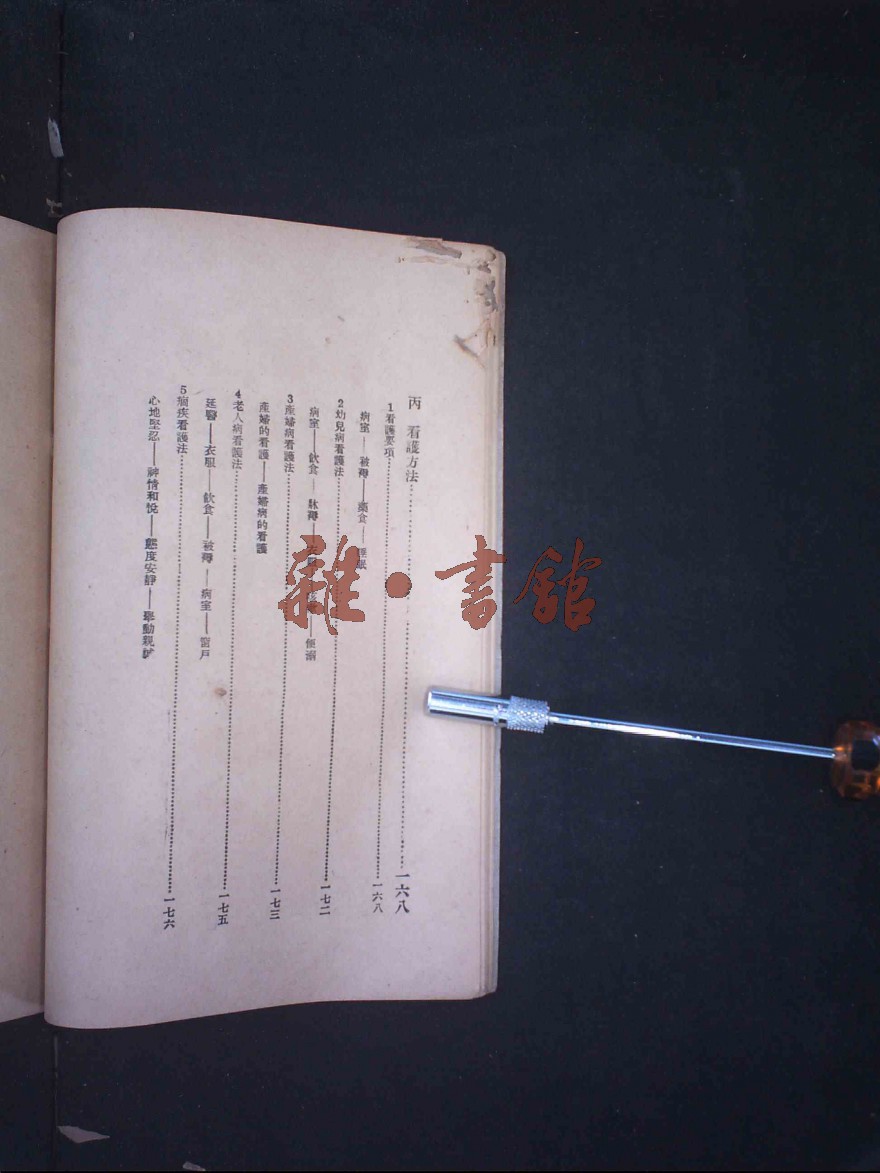 丙 看護方法……一六八
1看護要項……一六八
病室——被褥——藥食——睡眠
2幼兒病看護法……一七二
病室——飲食——牀褥——衣服——便溺
3產婦病看護法……一七三
產婦的看護——產婦病的看護
4老人病看護法……一七五
延醫——衣服——飲食——被褥——病室——窗戶
5痼疾看護法……一七六
心地堅忍——神情和悅——態度安靜——舉動親
雜·書館